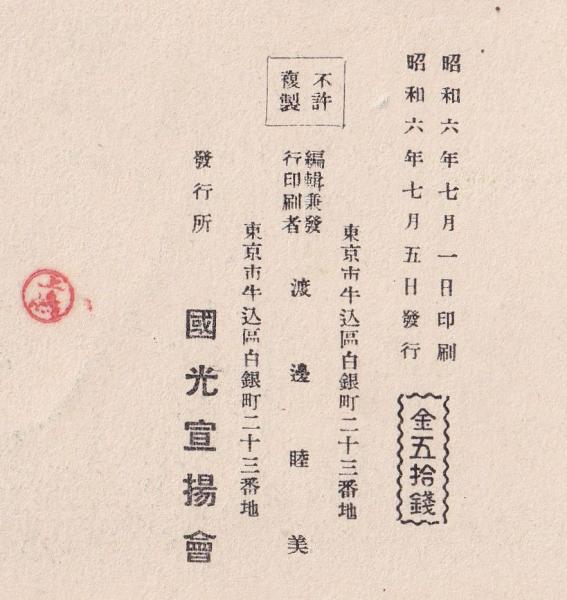 昭和六年七月一日印刷
昭和六年七月五日發行
金五拾錢
不許
複製
東京市牛込區白銀町二十三番地
編輯兼發
行印刷者
渡邊睦美
東京市牛込區白銀町二十三番地
發行所
國光宣揚會